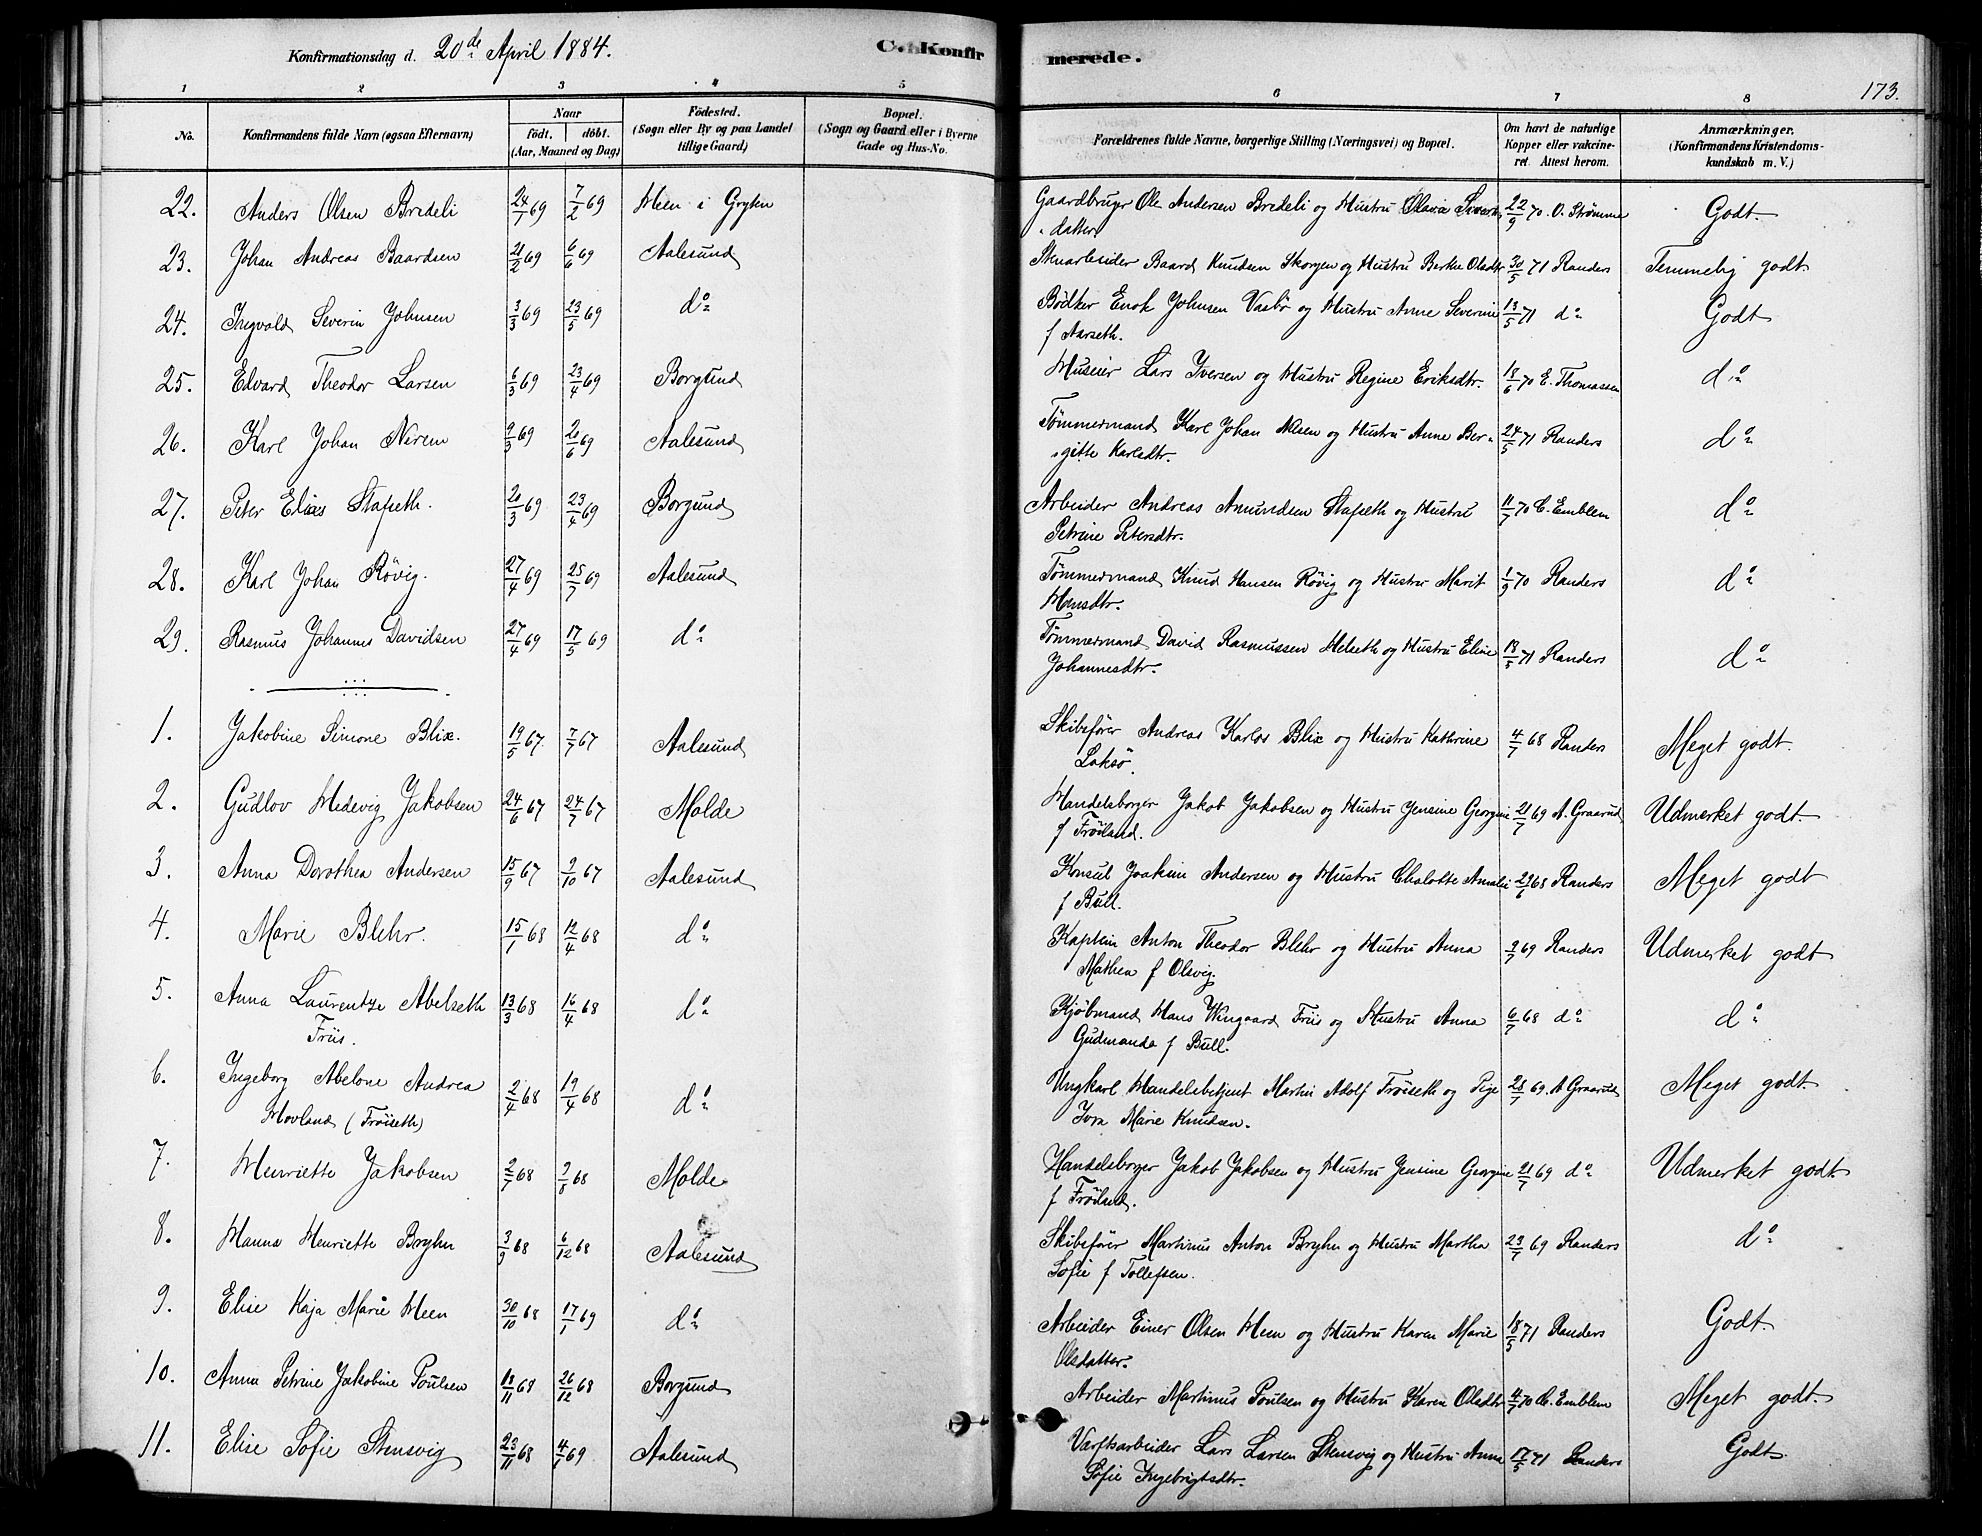 Konfirmationsdag d. 20de April 1884.
C. Konfirmerede.
173.
1 2 3 4 5 6 7 8
No. Konfirmandens fulde Navn (ogsaa Efternavn) Naar födt, döbt. (Aar, Maaned og Dag) Födested. (Sogn eller By og paa Landet tillige Gaard) Bopæl. (Sogn og Gaard eller i Byerne Gade og Hus-No. Forældrenes fulde Navne, borgerlige Stilling (Næringsvei) og Bopæl. Om havt de naturlige Kopper eller vakcineret. Attest herom. Anmærkninger. (Konfirmandens Kristendomskundskab m. V.)
22. Anders Olsen Bredeli 24/1 69 7/2 69 Hen i Gryten Gaardbruger Ole Andersen Bredeli og Hustru Olava Sivertsdatter 22/9 70 O. Strömme Godt.
23. Johan Andreas Baardsen 21/2 69 6/6 69 Aalesund Stenarbeider Baard Knudsen Skorgen og Hustru Berthe Olsdtr 30/5 71 Randers Temmelig godt
24. Ingvald Severin Johnsen 3/3 69 23/5 69 do Bödker Enok Johnsen Vasbö og Hustru Anne Severine
f Aarseth. 13/5 71 do Godt
25. Edvard Theodor Larsen 6/3 69 23/4 69 Borgund Musiker Lars Iversen og Hustru Regine Eriksdtr. 18/6 70 E. Thomassen do
26. Karl Johan Nirem 9/3 69 20/6 69 Aalesund Tömmermand Karl Johan Olsen og Hustru Anne Bergitte Karlsdtr. 24/5 71 Randers do
27. Peter Elias Stafseth. 20/3 69 23/4 69 Borgund Arbeider Andreas Amundsen Stafseth og Hustru
Petrine Petersdtr. 11/7 70 C. Emblem do
28. Karl Johan Rövig. 27/4 69 25/7 69 Aalesund Tömmermand Knud Hansen Rövig og Hustru Marit
Hansdtr. 1/9 70 Randers do
29. Rasmus Johannes Davidsen 27/4 69 17/5 69 do Tömmermand David Rasmussen Helseth og Hustru Eline
Johannesdtr. 18/5 71 Randers do
1. Jakobine Simone Blix. 19/5 67. 7/7 67 Aalesund Skibsförer Andreas Karlos Blix og Hustru Kathrine
Laksö. 4/7 68 Randers Meget godt.
2. Gudlov Hedevig Jakobsen 24/6 67 24/7 67 Molde Handelsborger Jakob Jakobsen og Hustru Jensine Georgine
f Fröiland. 21/7 69 A. Graarud Udmerket godt.
3. Anna Dorothea Andersen 15/9 67 9/10 67 Aalesund Konsul Joakim Andersen og Hustru Chalotte Amalie
f Bull. 23/6 68 Randers Meget godt
4. Marie Blehr. 15/1 68 12/4 68 do Kaptein Anton Theodor Blehr og Hustru Anna
Mathea f Olsvig. 9/7 69 Randers Udmerket godt
5. Anna Laurentze Abelseth
Friis. 13/3 68 16/4 68 do Kjöbmand Hans Wingaard Friis og Hustru Anna
Gudmanda f Bull. 6/7 68 do do
6. Ingeborg Abelone Andrea
Hovland (Fröiseth) 2/4 68 19/4 68 do Ungkarl Handelsbetjent Martin Adolf Fröiseth og Pige
Marie Knudsen. 28/7 69. A Graarud Meget godt
7. Henriette Jakobsen 2/7 68 9/8 68 Molde Handelsborger Jakob Jakobsen og Hustru Jensine Georgine
f Fröiland. 21/7 69 do Udmerket godt
8. Hanna Henriette Bryhn 3/9 68 6/12 68 Aalesund Skibsförer Martinus Anton Bryhn og Hustru Martha
Sofie f Tollefsen. 23/7 69 Randers do
9. Elise Kaja Marie Heen 30/10 68 17/1 69 do Arbeider Einer Olsen Heen og Hustru Karen Marie
Olsdatter. 18/5 71 Randers Godt.
10. Anna Petrine Jakobine Poulsen 18/11 68 26/12 68 Borgund Arbeider Martinus Poulsen og Hustru Karen Olsdtr 4/7 70 C. Emblem Meget godt.
11. Elise Sofie Stensvig 23/11 68 4/1 69 Aalesund Værftsarbeider Lars Larsen Stensvig og Hustru Anna
Sofie Ingebrigtsdtr. 17/5 71 Randers Godt